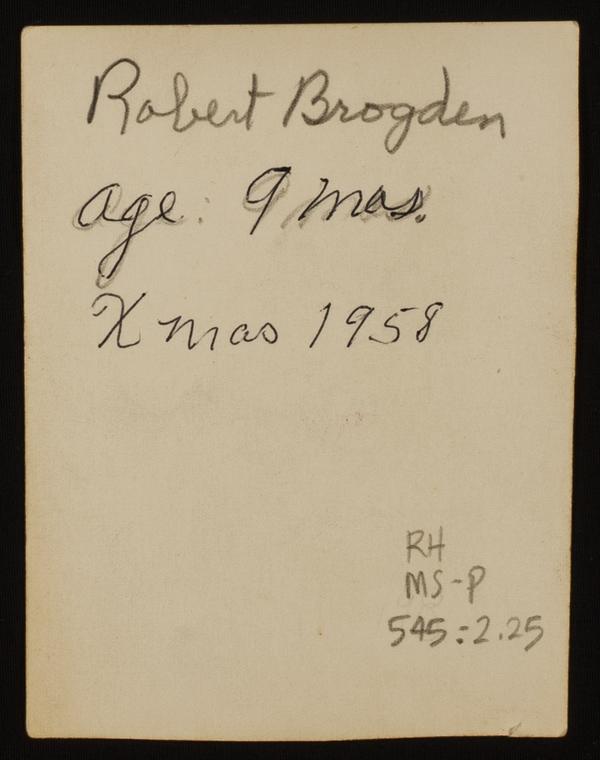 Robert Brogden
age: 9 mos.
Xmas 1958
RH
MS-P
545:2.25